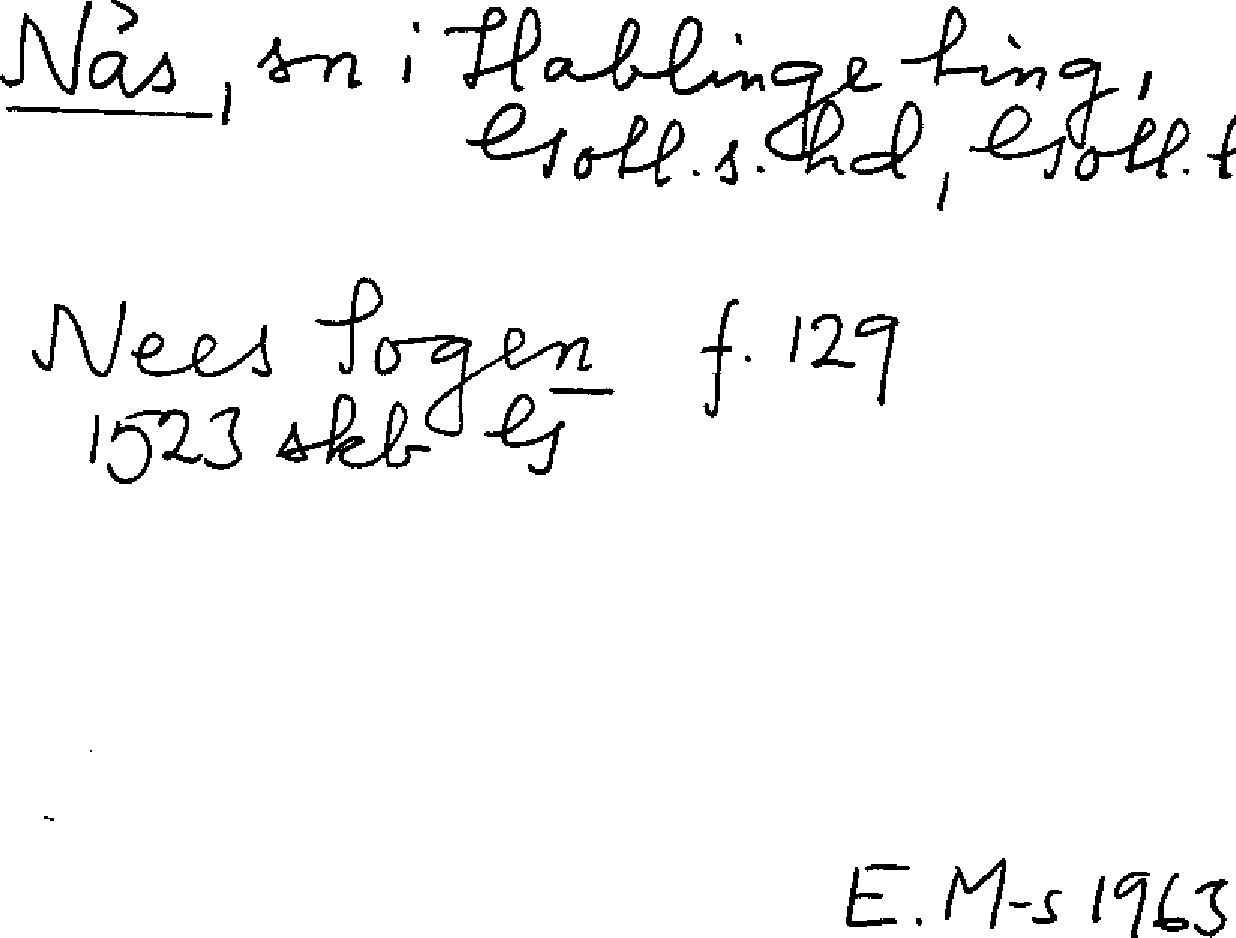 Näs, sn i Hablinge ting,
Gotl. s. hd, Gotl. l
Nees Sogen f. 129
1523 skb G
E. M-s 1963